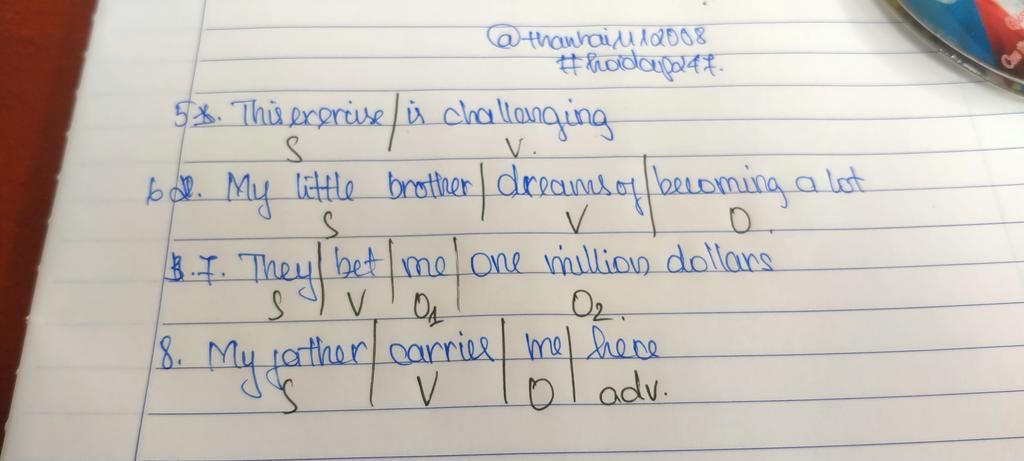 @thanhai1112008
#hoidap247.
5. This exercise / is challanging
S V.
6. My little brother / dreams of / becoming a lot
S V O.
7. They / bet / me / one million dollars
S V O1 O2.
8. My father / carries / me / here
S V O adv.